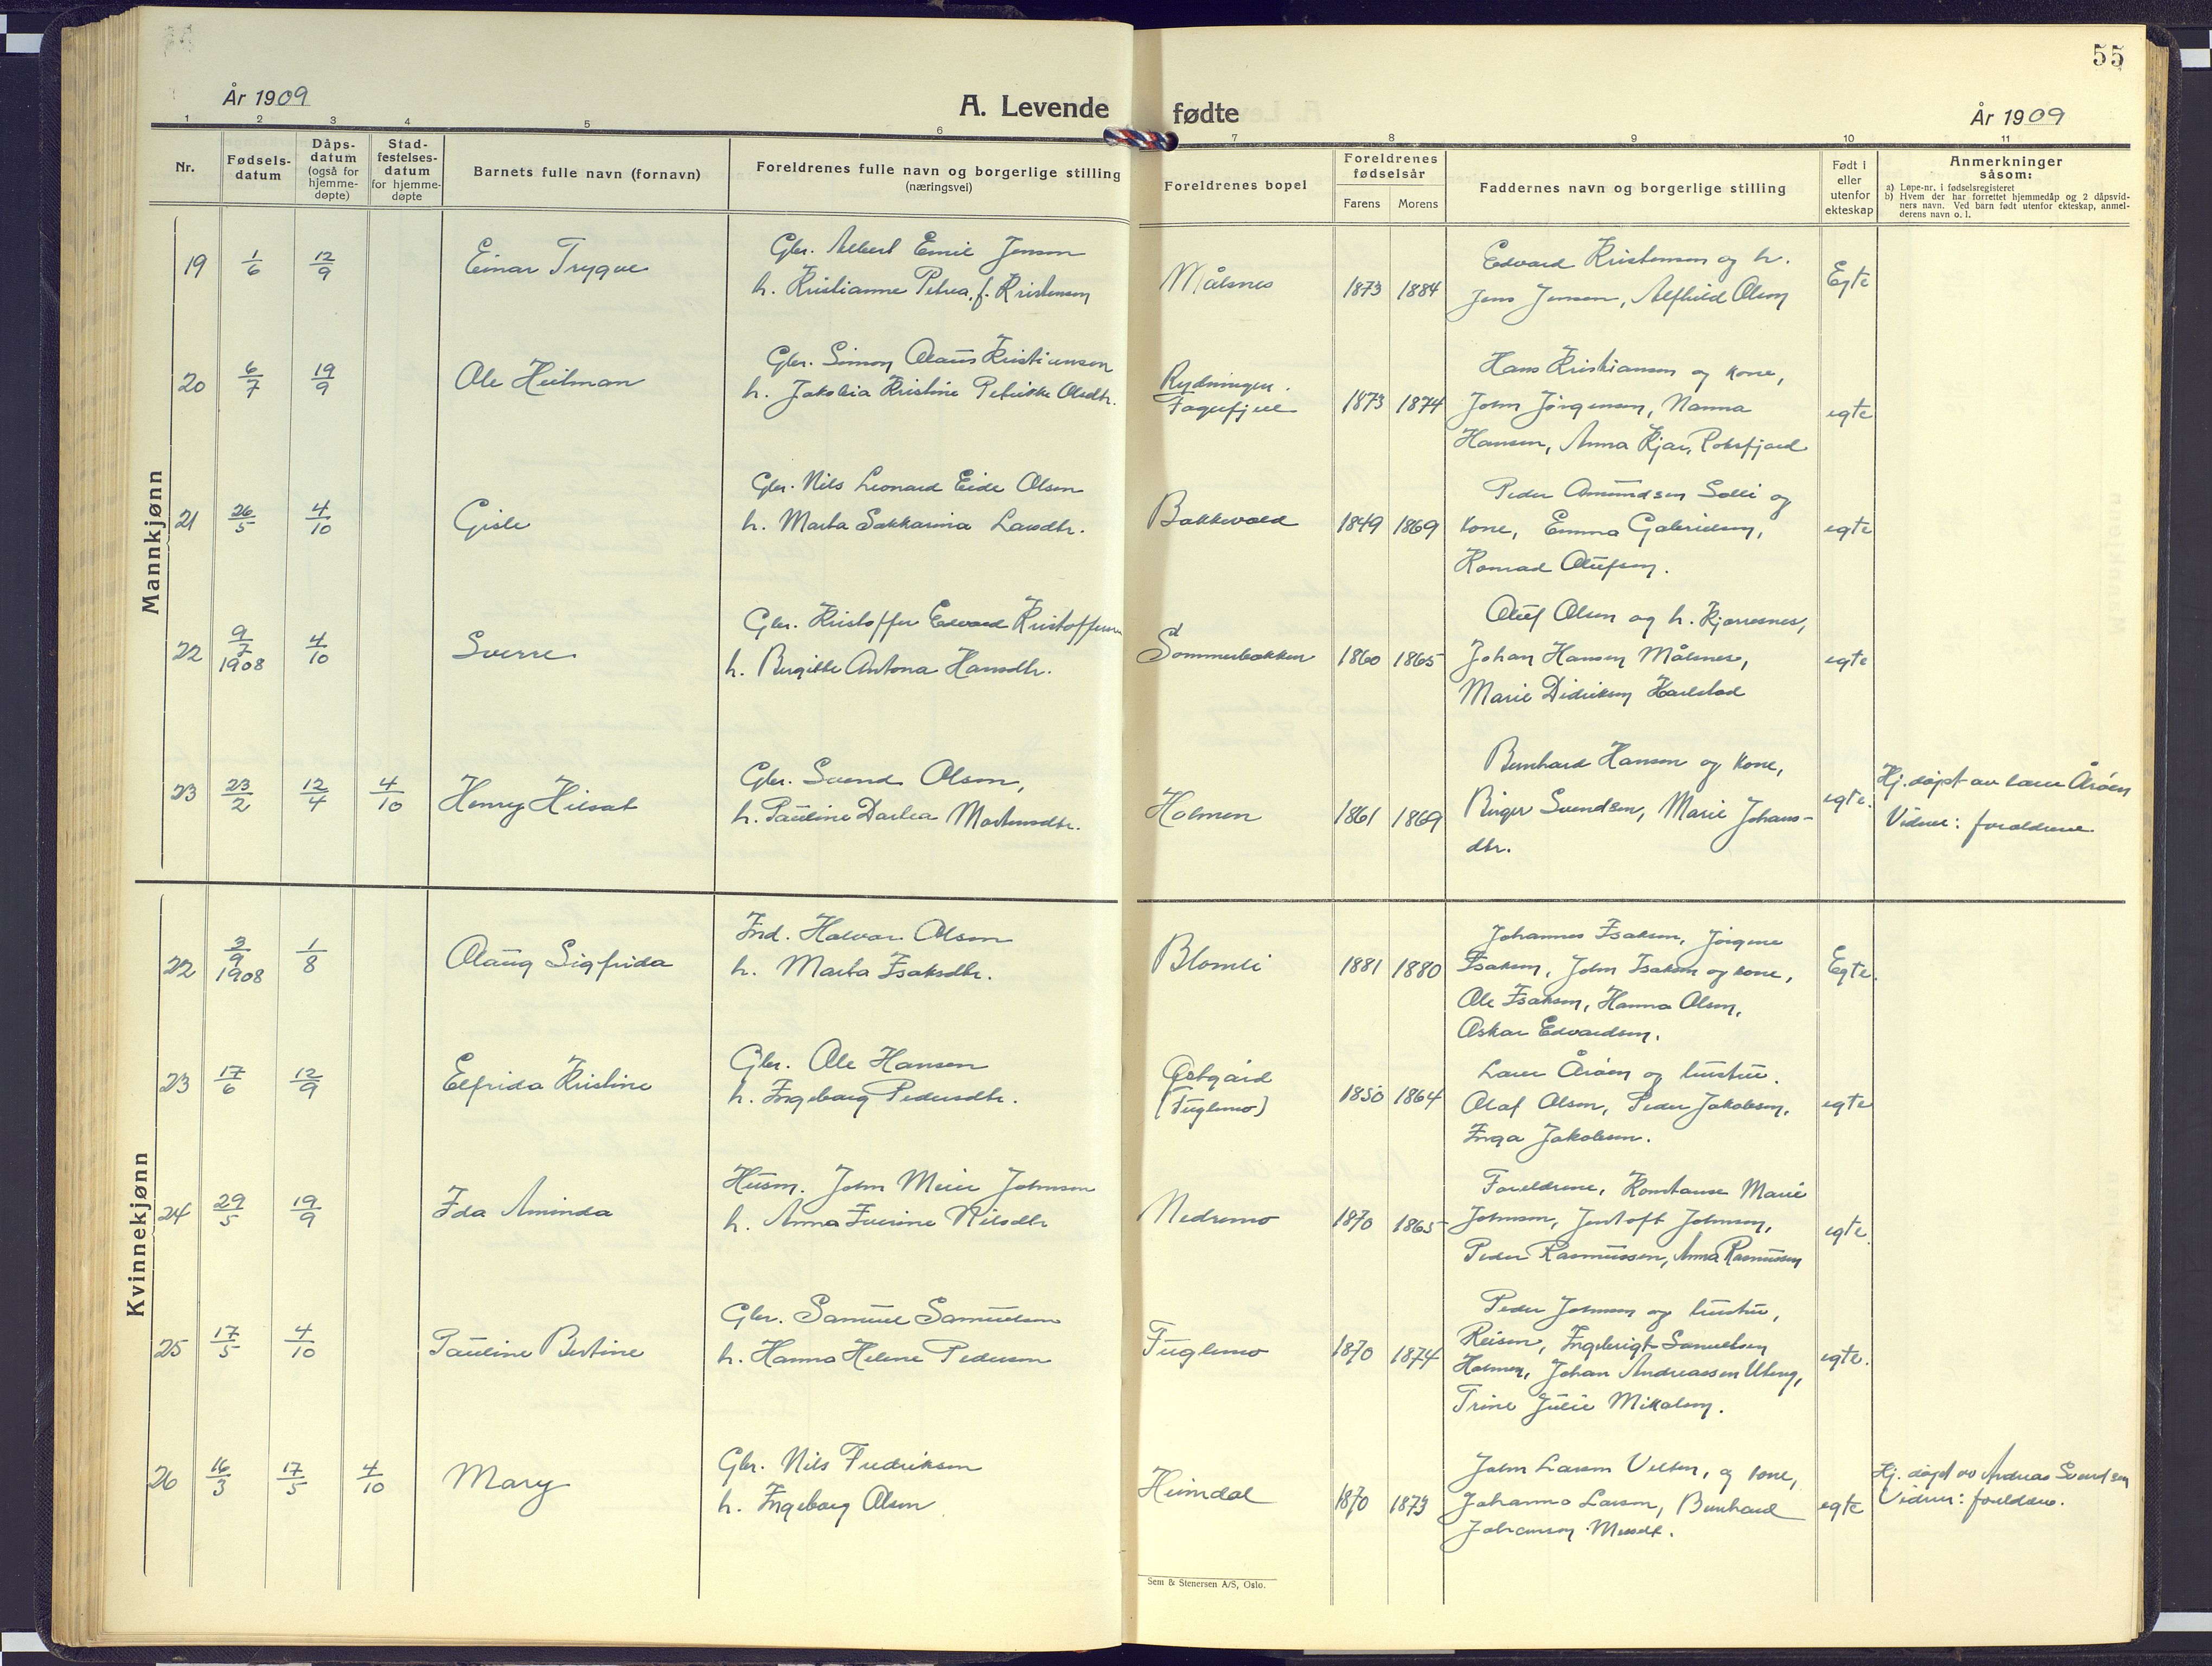 55
År 1909
A. Levende fødte
År 1909
1 2 3 4 5 6 7 8 9 10 11
Nr.
Fødsels-
datum
Dåps-
datum
(også for
hjemme-
døpte)
Stad-
festelses-
datum
for hjemme-
døpte
Barnets fulle navn (fornavn)
Foreldrenes fulle navn og borgerlige stilling
(næringsvei)
Foreldrenes bopel
Foreldrenes
fødselsår
Farens Morens
Faddernes navn og borgerlige stilling
Født i
eller
utenfor
ekteskap
Anmerkninger
såsom:
a) Løpe-nr. i fødselsregisteret
b) Hvem der har forrettet hjemmedåp og 2 dåpsvid-
ners navn. Ved barn født utenfor ekteskap, anmel-
derens navn o. l.
Mannkjønn
19 1/6 12/9 Einar Trygve
Gbr. Albert Emil Jensen
h. Kristianne Petrea, f. Kristensen
Målsnes 1873 1884
Edvard Kristensen og h.
Jens Jensen, Alfhild Olsen
Egte
20 6/7 19/9 Ole Heitman
Gbr. Simon Olaus Kristiansen
h. Jakobia Kristine Petrikke Olsdtr.
Rydningen.
Fagerfjell 1873 1874
Hans Kristiansen og kone,
John Jørgensen, Nanna
Hansen, Anna Kjær, Roksfjord
egte
21 26/5 4/10 Gisle
Gbr. Nils Leonard Eide Olsen
h. Marta Sakkarina Larsdtr.
Bakkevold 1849 1869
Peder Amundsen Solli og
kone, Emma Gabrielsen,
Konrad Olufsen.
egte
22 9/7 1908 4/10 Sverre
Gbr. Kristoffer Edvard Kristoffersen
h. Birgitte Antona Hansdtr.
Sommerbakken 1860 1865
Oluf Olsen og h. Kjerresnes,
Johan Hansen Målsnes,
Marie Didriksen Karlstad
egte
23 23/2 12/4 4/10 Henry Hilsat
Gbr. Svend Olsen,
h. Pauline Dortea Mortensdtr.
Holmen 1861 1869
Bernhard Hansen og kone,
Birger Svendsen, Marie Johans-
dtr.
egte.
Hj. døpt av lærer Årøen
Vidner: foreldrene
Kvinnekjønn
22 3/9 1908 1/8 Olaug Sigfrida
Ind. Halvor Olsen
h. Marta Isaksdtr.
Blomli 1881 1880
Johannes Isaksen, Jørgine
Isaksen, John Isaksen og kone,
Ole Isaksen, Hanna Olsen,
Oskar Edvardsen.
Egte.
23 17/6 12/9 Elfrida Kristine
Gbr. Ole Hansen
h. Ingeborg Pedersdtr.
Østgård
(Fuglemo) 1850 1864
Lærer Årøen og hustru.
Olaf Olsen, Peder Jakobsen,
Inga Jakobsen.
egte
24 29/5 19/9 Ida Aminda
Husm. John Meier Johnsen
h. Anna Iverine Nilsdtr
Nedremo 1870 1865
Foreldrene, Konstanse Marie
Johnsen, Jentoft Johnsen,
Peder Rasmussen, Anna Rasmussen
egte.
25 17/5 4/10 Pauline Bertine
Gbr. Samuel Samuelsen
h. Hanna Helene Pedersen
Fuglemo 1870 1874
Peder Johnsen og hustru,
Reisen, Ingebrigt Samuelsen
Holmen, Johan Andreassen Uteng,
Trine Julie Mikalsen.
egte.
26 16/3 17/5 4/10 Mary
Gbr. Nils Fredriksen
h. Ingeborg Olsen
Heimdal 1870 1873
John Larsen Velten, og kone,
Johanna Larsen, Bernhard
Johansen
egte
Hj. døpt av Andreas Svendsen
Vidner: foreldre.
Sem & Stenersen A/S, Oslo.